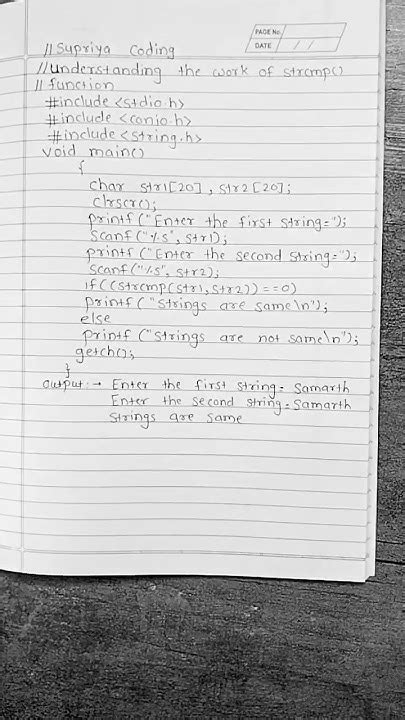 PAGE No.
DATE / /
// Supriya Coding
// Understanding the work of strcmp()
// function
#include <stdio.h>
#include <conio.h>
#include <string.h>
void main()
{
char str1[20], str2[20];
clrscr();
printf ("Enter the first string=");
scanf("%s", str1);
printf ("Enter the second string=");
scanf("%s", str2);
if((strcmp(str1,str2))==0)
printf ("strings are same\n");
else
printf ("strings are not same\n");
getch();
}
output:→ Enter the first string= Samarth
Enter the second string= Samarth
strings are same